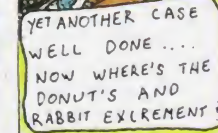 YET ANOTHER CASE
WELL DONE ....
NOW WHERE'S THE
DONUT'S AND
RABBIT EXCREMENT!